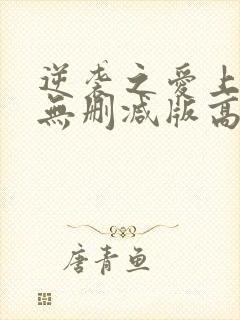 逆袭之爱上
無删减版高
唐青鱼